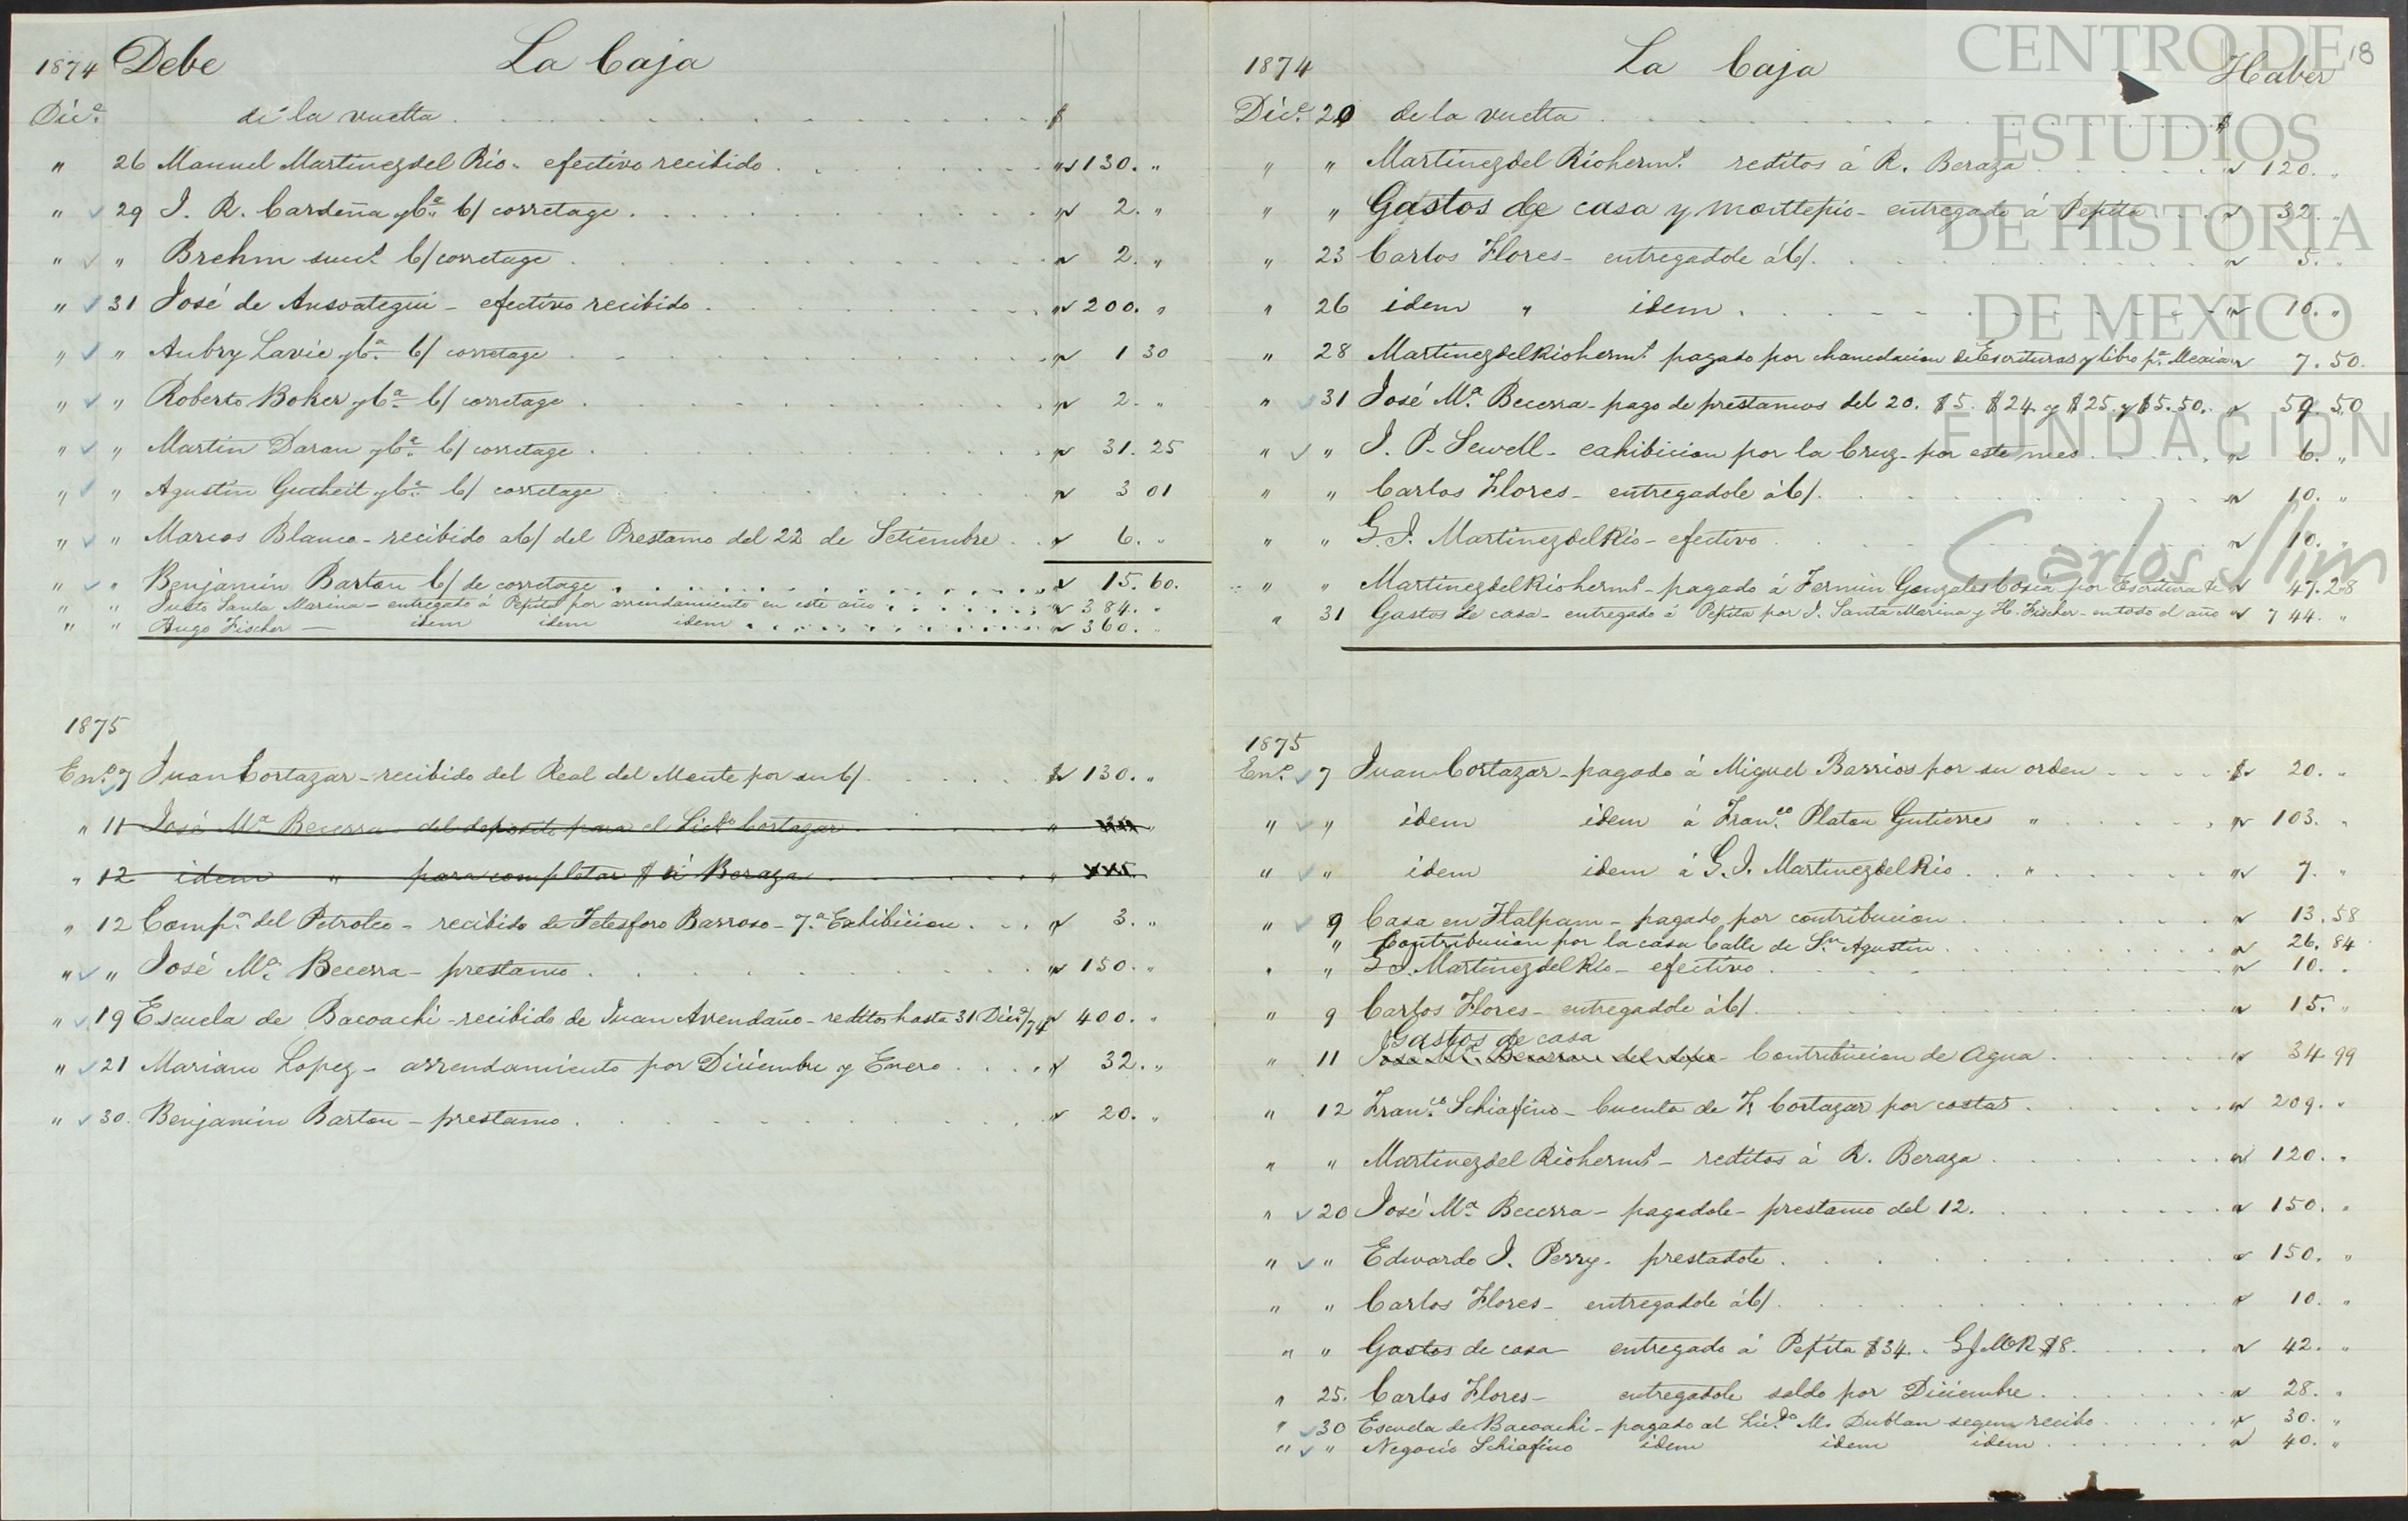 1874 Debe La Caja
Dice. de la vuelta $
" 26 Manuel Martinez del Rio - efectivo recibido " 130. "
" 29 J. R. Cardeña y Ca. C/ corretage " 2. "
" " Brehm sucs. C/ corretage " 2. "
" 31 José de Ansoategui - efectivo recibido " 200. "
" " Aubry Lavie y Ca. C/ corretage " 1 30
" " Roberto Boker y Ca. C/ corretage " 2. "
" " Martin Daran y Ca. C/ corretage " 31. 25
" " Agustin Gutheil y Ca. C/ corretage " 3 01
" " Marcos Blanco - recibido a C/ del Prestamo del 22 de Setiembre " 6. "
" " Benjamin Barton C/ de corretage " 15. 60.
" " Justo Santa Marina - entregado á Pepita por arrendamiento en este año " 384. "
" " Hugo Fischer - idem idem idem " 360. "
1875
Eno. 7 Juan Cortazar - recibido del Real del Monte por su C/ $ 130. "
" 11 José Ma. Becerra - del deposito para el Licdo Cortazar "
" 12 idem " para completar $ á Beraza "
" 12 Compa. del Petroleo - recibido de Telesforo Barroso - 7a. Exhibicion " 3. "
" " José Ma. Becerra - prestamo " 150. "
" 19 Escuela de Bacoachi - recibido de Juan Avendaño - reditos hasta 31 Dice/74 " 400. "
" 21 Mariano Lopez - arrendamiento por Diciembre y Enero " 32. "
" 30. Benjamin Barton - prestamo " 20. "
1874 La Caja Haber 18
Dice. 20 de la vuelta $
" " Martinez del Rio herms. reditos á R. Beraza " 120. "
" " Gastos de casa y montepio - entregado á Pepita " 32. "
" 23 Carlos Flores - entregadole á C/. " 5. "
" 26 idem " idem " 10. "
" 28 Martinez del Rio herms. pagado por chancelacion de Escrituras y libro pa. Mexia " 7. 50.
" 31 José Ma. Becerra - pago de prestamos del 20. $5. $24. y $25. y $5.50. " 59. 50
" " J. P. Sewell - exhibicion por la Cruz - por este mes " 6. "
" " Carlos Flores - entregadole á C/. " 10. "
" " G. J. Martinez del Rio - efectivo " 10. "
" " Martinez del Rio herms. - pagado á Fermin Gonzales Cosia por Escritura de " 47. 28
" 31 Gastos de casa - entregado á Pepita por J. Santa Marina y H. Fischer - en todo el año " 744. "
1875
Eno. 7 Juan Cortazar - pagado á Miguel Barrios por su orden $ 20. "
" " idem idem á Franco. Platon Gutierres " " 103. "
" " idem idem á G. J. Martinez del Rio " " 7. "
" 9 Casa en Tlalpam - pagado por contribucion " 13. 58
" Contribucion por la casa Calle de Sn. Agustin " 26. 84
" " G J. Martinez del Rio - efectivo " 10. "
" 9 Carlos Flores - entregadole á C/. " 15. "
Gastos de casa
" 11 José Ma. Becerra del depo - Contribucion de Agua " 34 99
" 12 Franco. Schiafino - Cuenta de F. Cortazar por costas " 209. "
" " Martinez del Rio herms. - reditos á R. Beraza " 120. "
" 20 José Ma. Becerra - pagadole - prestamo del 12. " 150. "
" " Edwardo J. Perry - prestadole " 150. "
" " Carlos Flores - entregadole á C/. " 10. "
" " Gastos de casa - entregado á Pepita $34. - G J M de R $8. " 42. "
" 25. Carlos Flores - entregadole saldo por Diciembre " 28. "
" 30 Escuela de Bacoachi - pagado al Licdo M. Dublan segun recibo " 30. "
" " Negocio Schiafino idem idem idem " 40. "
CENTRO DE
ESTUDIOS
DE HISTORIA
DE MEXICO
FUNDACIÓN
Carlos Slim